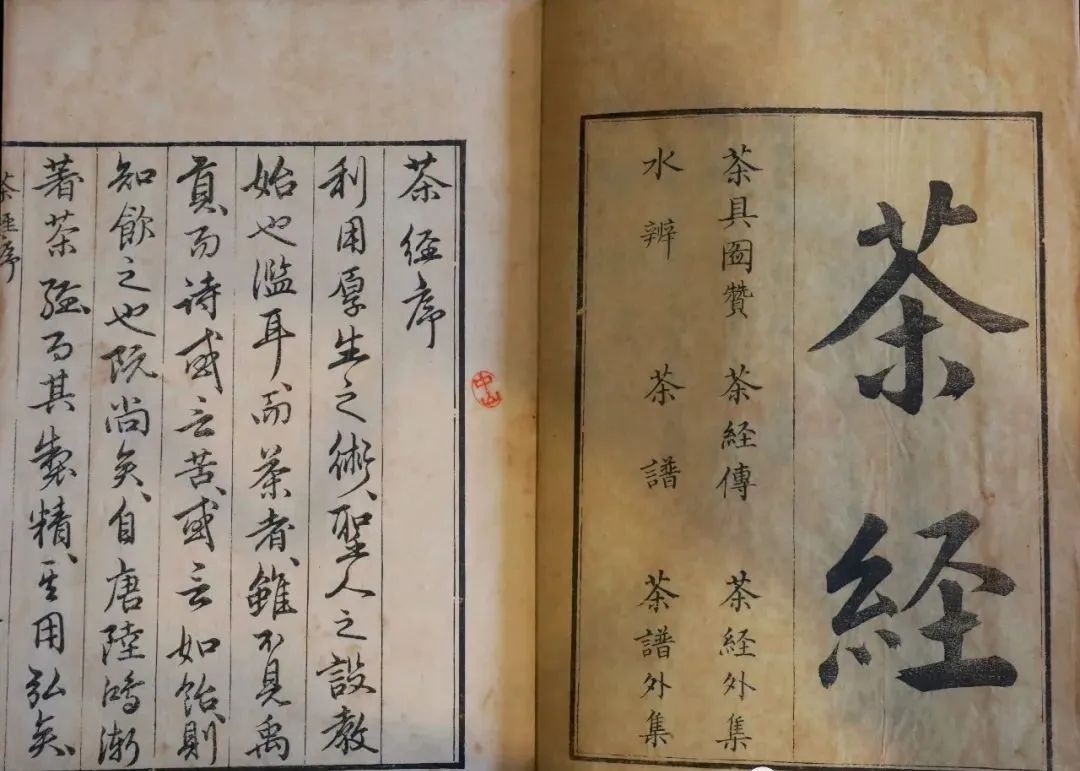 茶経
茶具圖贊　茶経傳　茶経外集
水辨　茶譜　茶譜外集
中山
茶经序
利用厚生之術、聖人之設教
始也濫耳、而茶者、雖不見禹
貢、而诗或言苦、或言如飴、則
知飲之也既尚矣、自唐陸鴻漸
著茶経、而其製精、其用弘矣、
茶経序